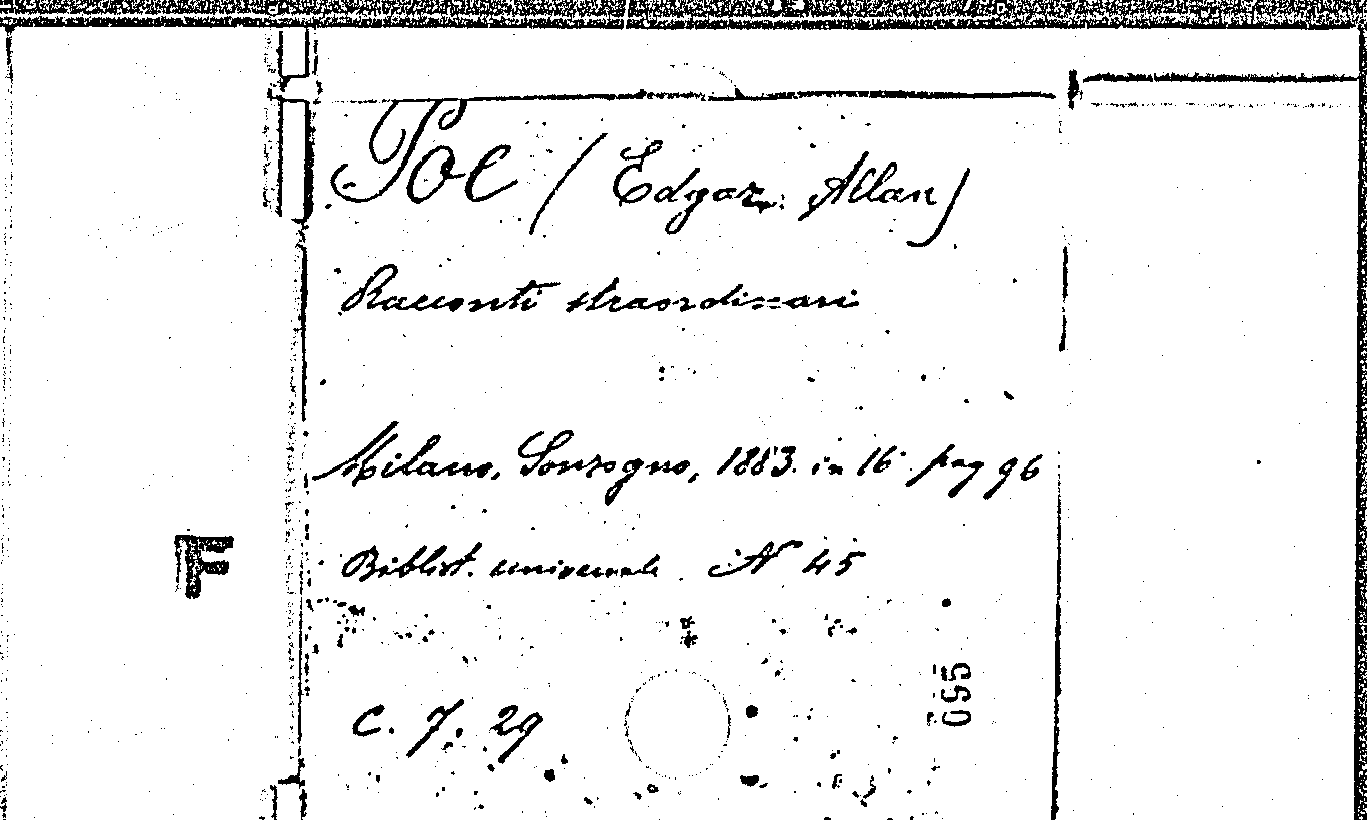 Poe (Edgar Allan)
Racconti straordinari
Milano, Sonzogno, 1883. in 16° pag 96
F
Bibliot. universale N 45
**
095
C. 7. 29